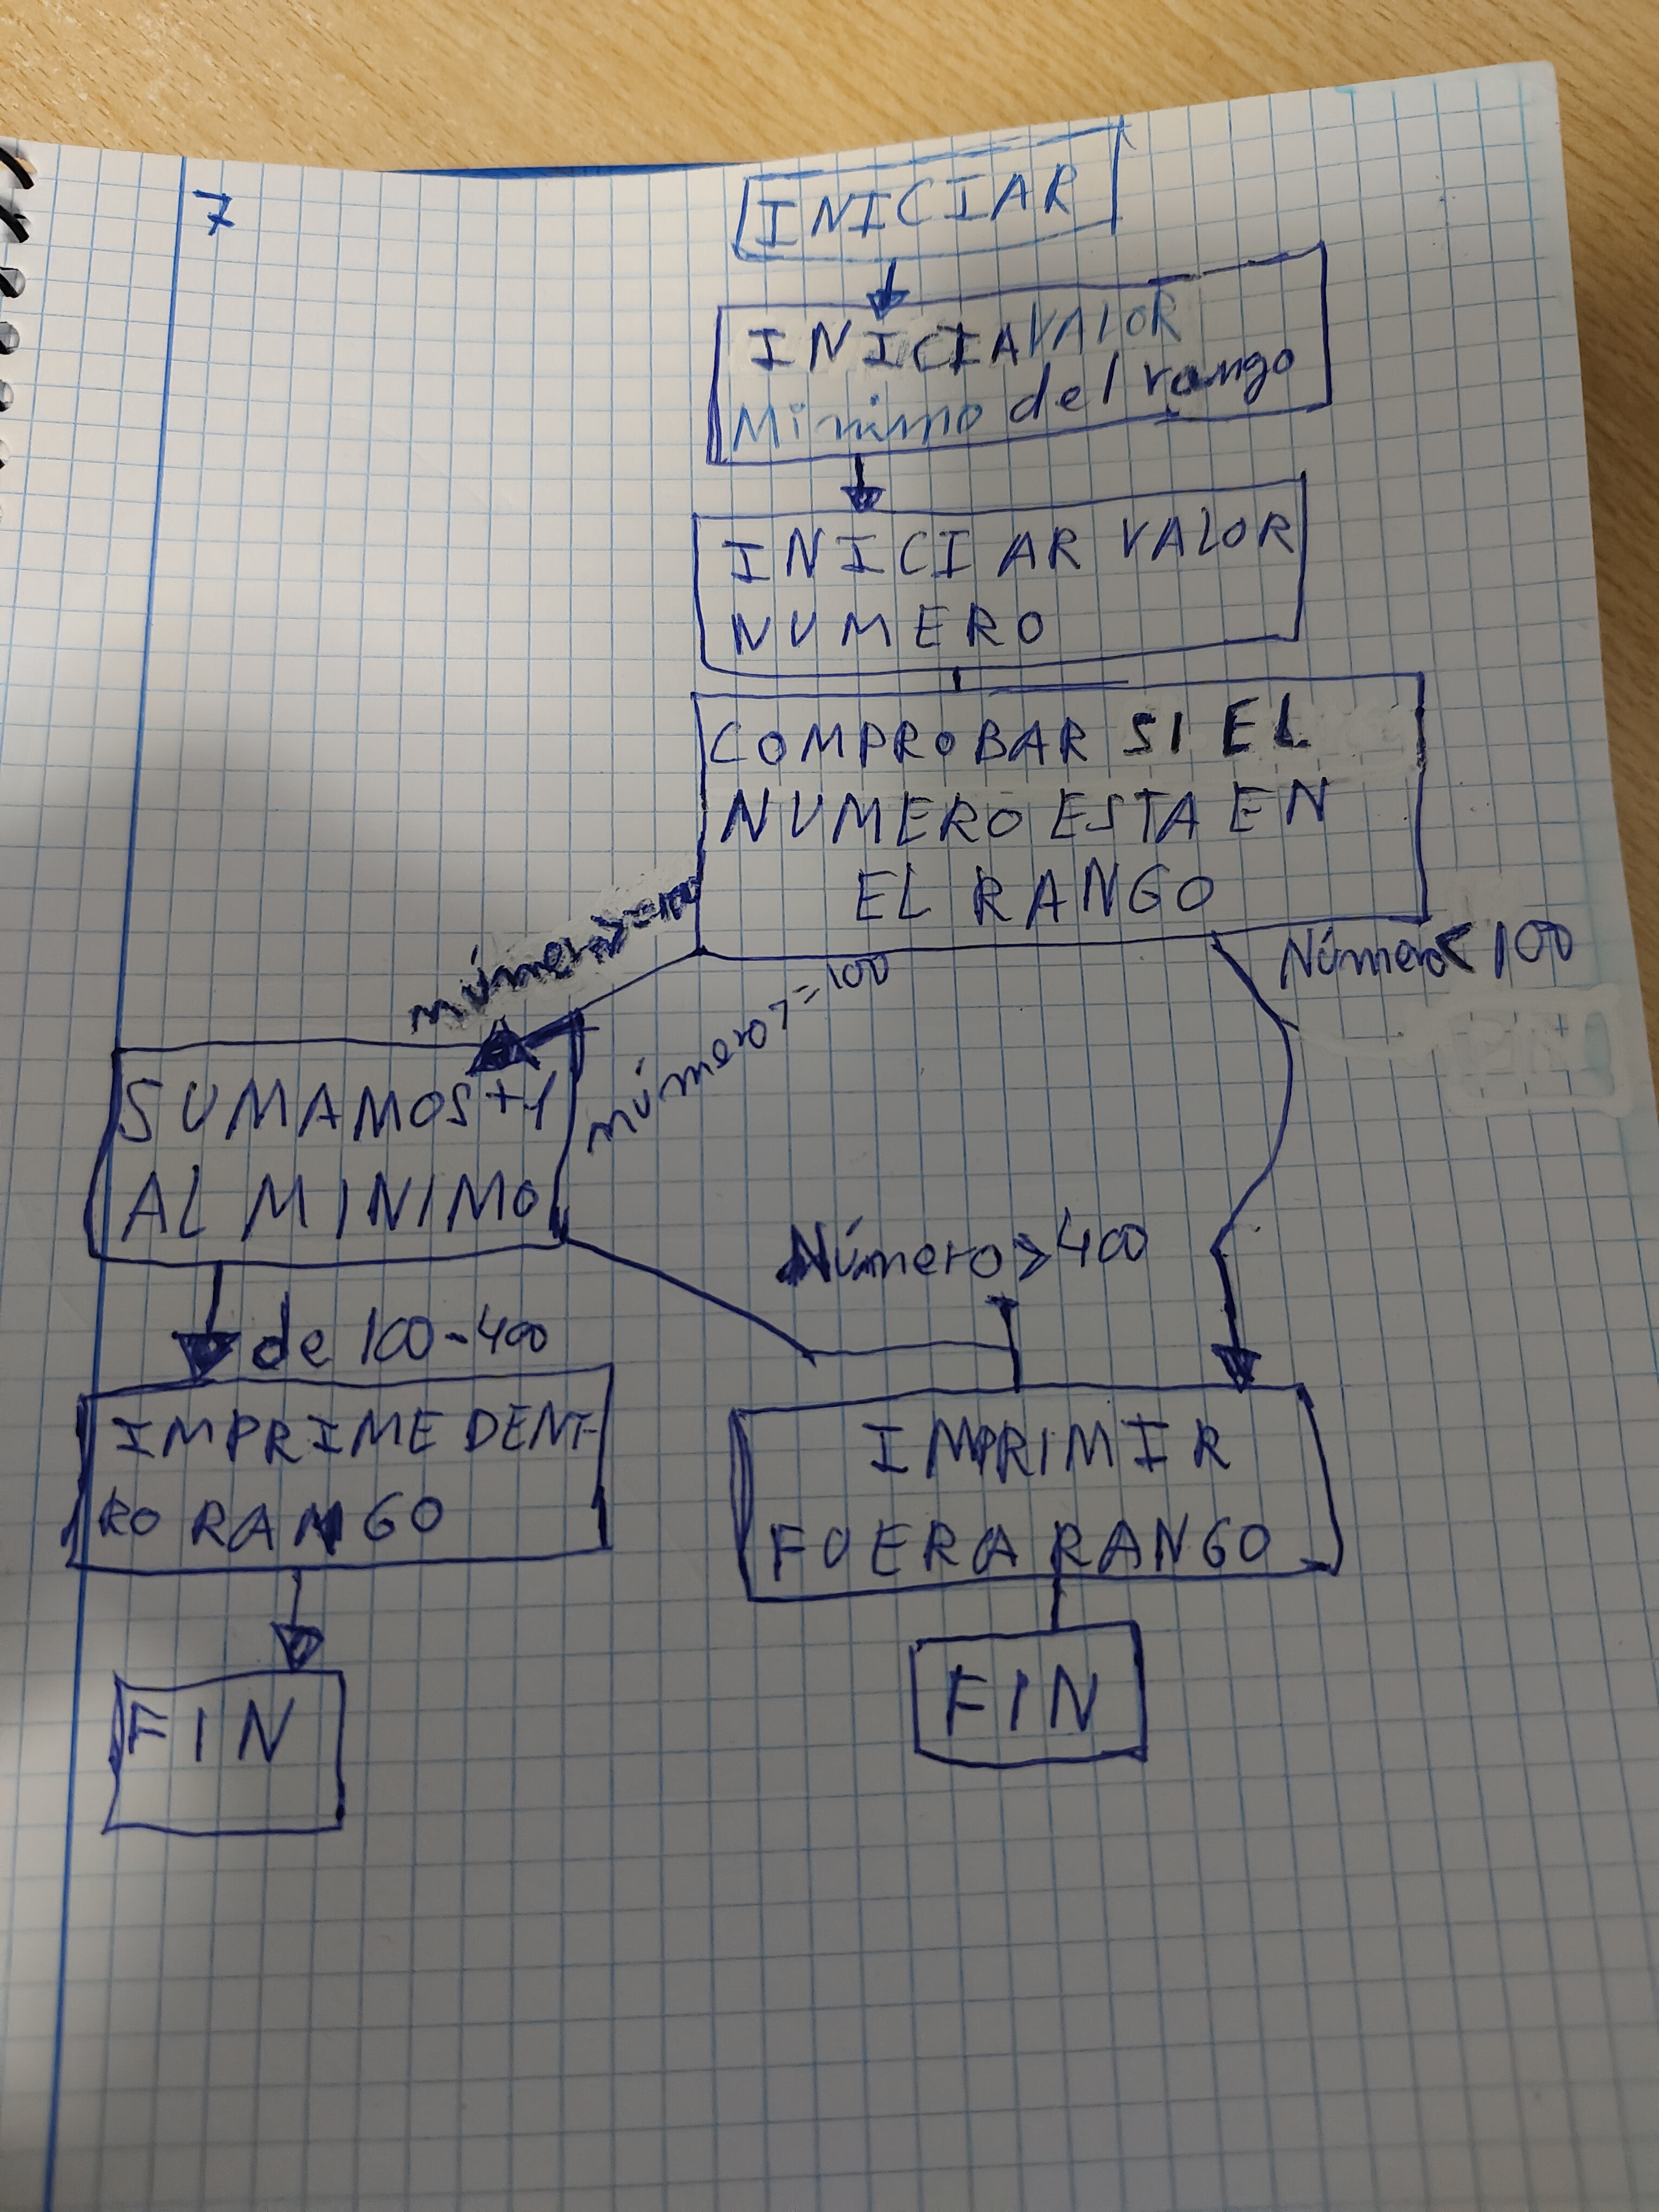 7
INICIAR
INICIA VALOR
Minimo del rango
INICIAR VALOR
NUMERO
COMPROBAR SI EL
NUMERO ESTA EN
EL RANGO
número>=100
número>=100
Número< 100
SUMAMOS +1
AL MINIMO
Número > 400
de 100-400
IMPRIME DENT-
RO RANGO
IMPRIMIR
FUERA RANGO
FIN
FIN